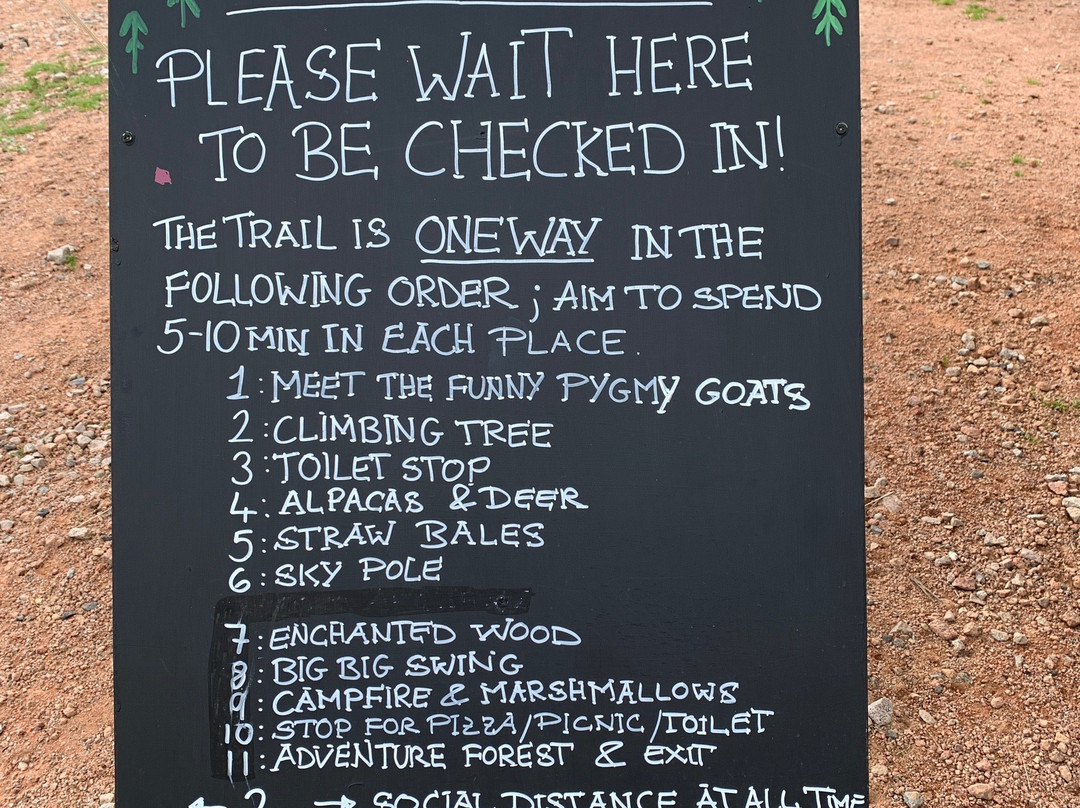 PLEASE WAIT HERE
TO BE CHECKED IN!
THE TRAIL IS ONE WAY IN THE
FOLLOWING ORDER ; AIM TO SPEND
5-10 MIN IN EACH PLACE.
1: MEET THE FUNNY PYGMY GOATS
2: CLIMBING TREE
3: TOILET STOP
4: ALPACAS & DEER
5: STRAW BALES
6: SKY POLE
7: ENCHANTED WOOD
8: BIG BIG SWING
9: CAMPFIRE & MARSHMALLOWS
10: STOP FOR PIZZA/PICNIC/TOILET
11: ADVENTURE FOREST & EXIT
← 2 → SOCIAL DISTANCE AT ALL TIME